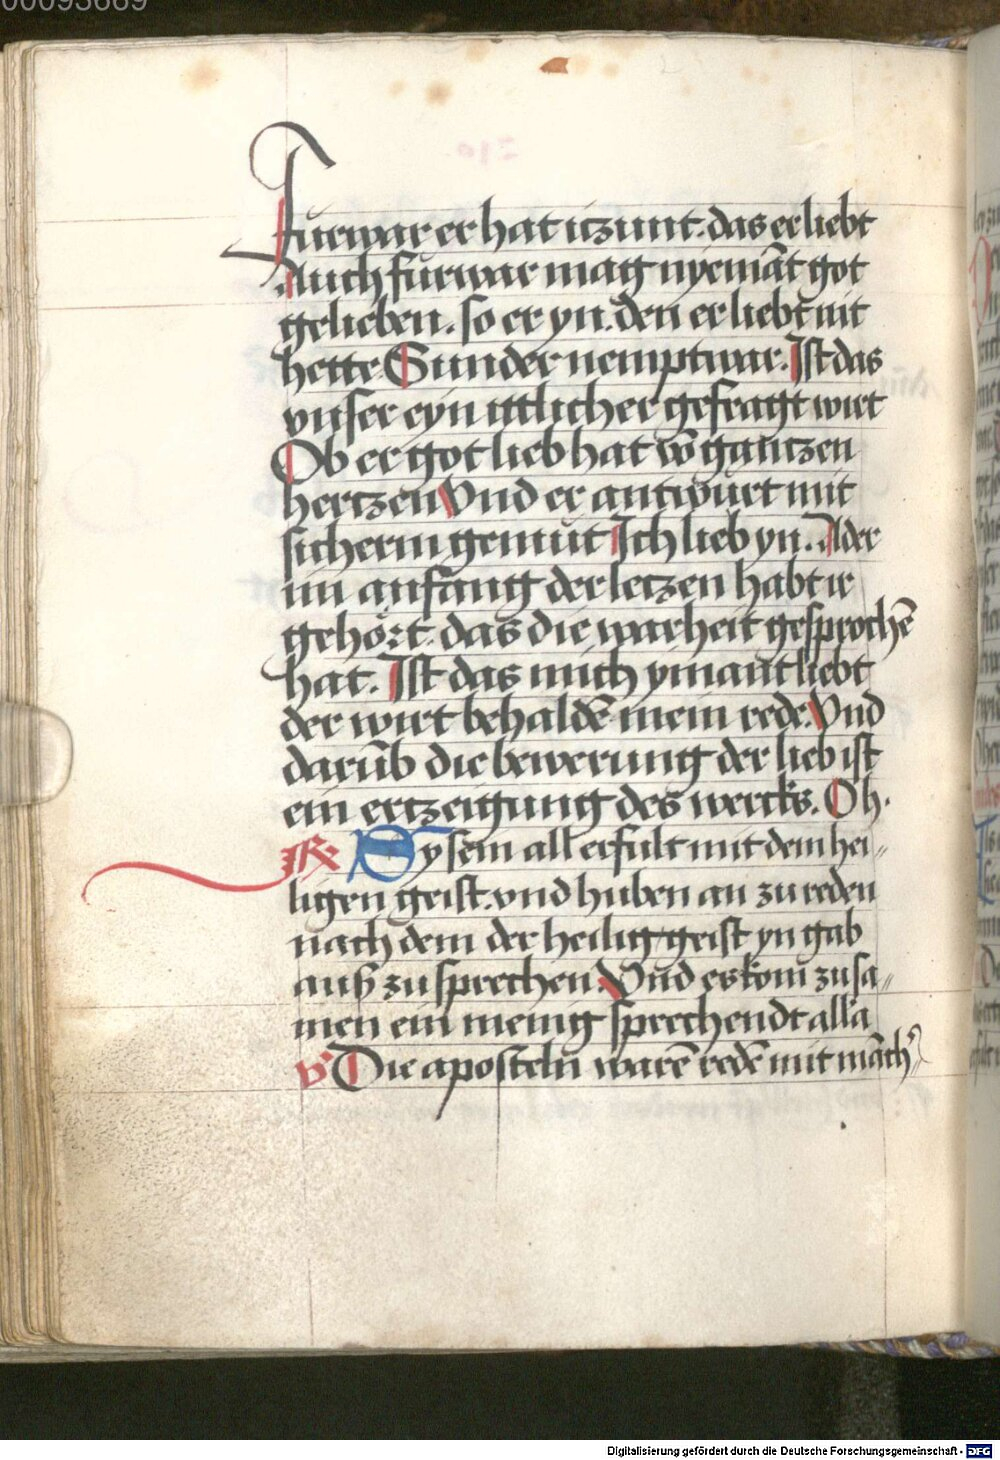 00093669
Furwar er hat itzunt. das er liebt
Auch furwar mag nyemāt got
gelieben. so er yn. den er liebt nit
hette Sunder nempt war. Ist das
vnser eyn ittlicher gefragt wirt
Ob er got lieb hat vō gantzen
hertzen Vnd er antwurt mit
sicherm gemut Ich lieb yn. Ader
im anfang der letzen habt ir
gehört. das die warheit gesprochē
hat. Ist das mich ymant liebt
der wirt behaldē mein rede. Vnd
darūb die bewerung der lieb ist
ein ertzeigung des wercks. Oh.
R. Sy sein all erfult mit dem hei„
ligen geist. vnd huben an zu reden
nach dem der heilig geist yn gab
auß zu sprechen. Vnd es kom zu sa„
men ein menig sprechendt alľa
v Die aposteln warē redē mit māch'
Digitalisierung gefördert durch die Deutsche Forschungsgemeinschaft - DFG